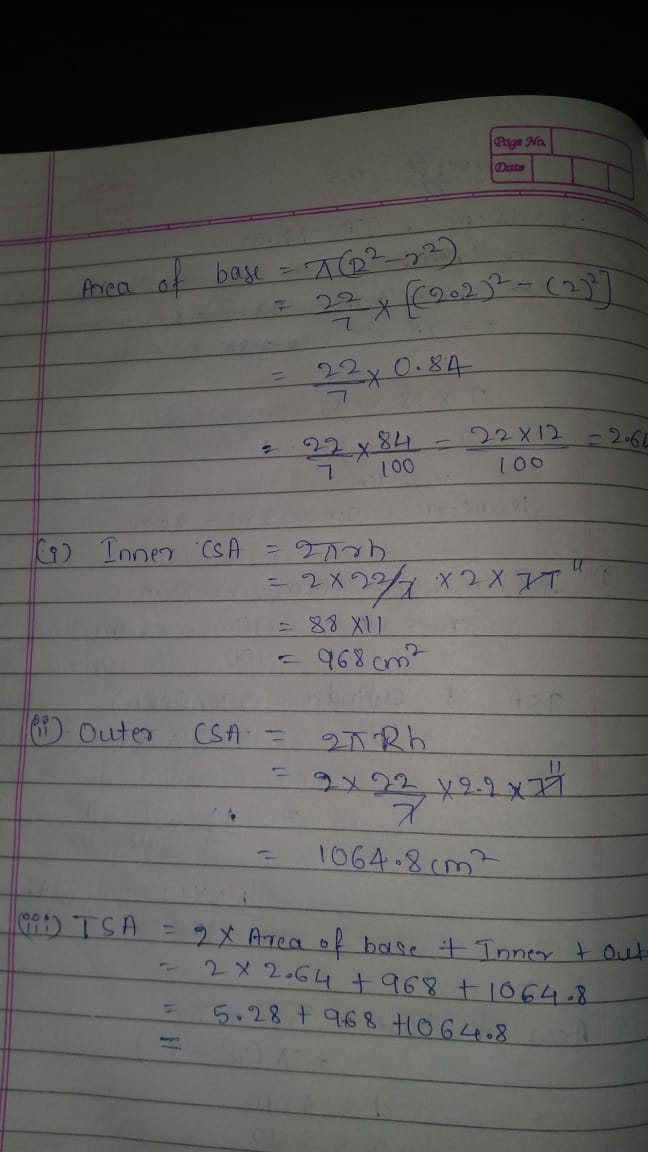 Page No.
Date
Area of base = π(R²-r²)
= 22/7 × [(2.2)² - (2)²]
= 22/7 × 0.84
= 22/7 × 84/100 = 22×12/100 = 2.64
(i) Inner CSA = 2πrh
= 2×22/7 × 2 × 77 11
= 88 ×11
= 968 cm²
(ii) Outer CSA = 2πRh
= 2 × 22/7 × 2.2 × 77 11
= 1064.8 cm²
(iii) TSA = 2× Area of base + Inner + Out
= 2 × 2.64 + 968 + 1064.8
= 5.28 + 968 +1064.8
=